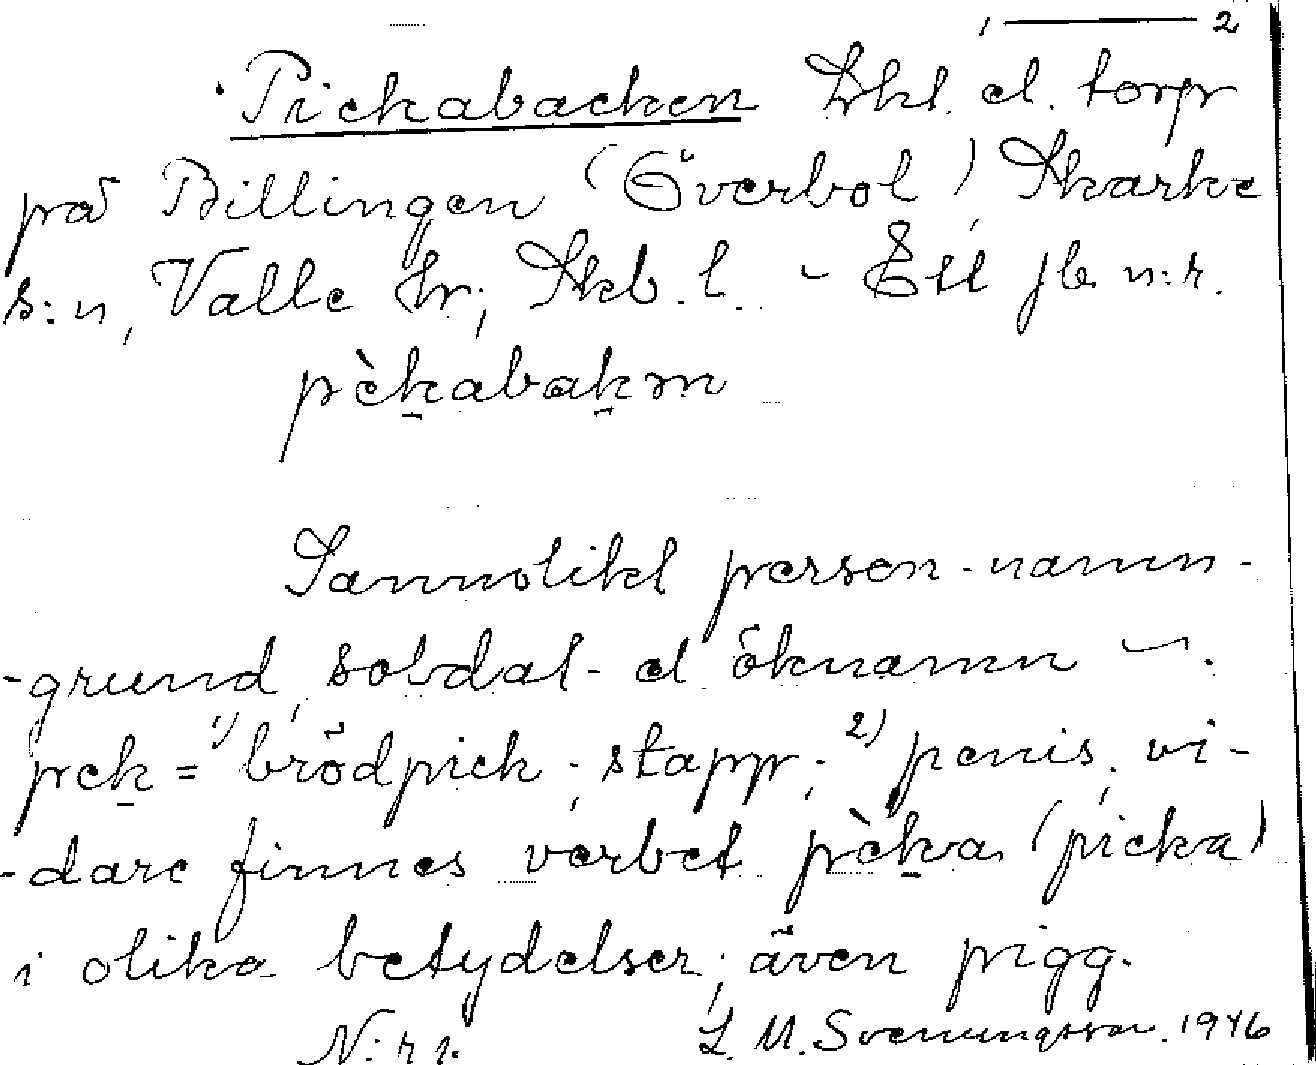 1 ——— 2
Pickabacken Lkl. el. torp
på Billingen (Överbol), Skarke
s:n, Valle hr; Skb. l. - Ett jb n:r.
pèkabakm
Sannolikt person-namn-
-grund, soldat- el öknamn -.
pek = 1) brödpick; stapp; 2) penis, vi-
-dare finnes verbet pèka (picka)
i olika betydelser; även pigg.
N:r 1.
L. M. Svenungsson. 1946